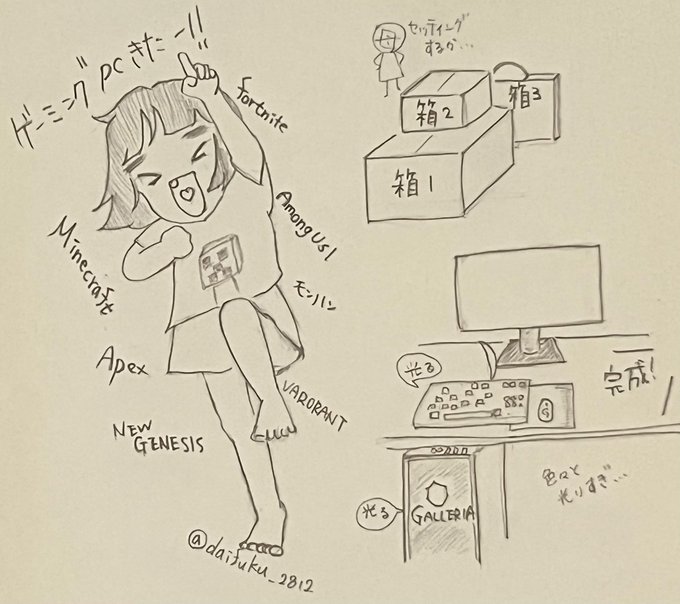 ゲーミングPCきたー!!
fortnite
Among Us!
モンハン
VARORANT
Minecraft
Apex
NEW
GENESIS
@daifuku_2812
母
セッティング
するか...
箱2
箱3
箱1
光る
完成!
光る
GALLERIA
色々と
光りすぎ...